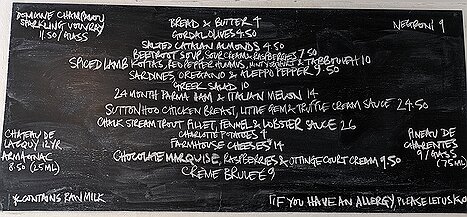 DOMAINE CHAMPALOU
SPARKLING VOUVRAY
11.50/GLASS
NEGRONI 9
BREAD & BUTTER 4
GORDAL OLIVES 4.50
SALTED CATALAN ALMONDS 4.50
BEETROOT SOUP, SOUR CREAM & RASPBERRIES 7.50
SPICED LAMB KOFTAS, RED PEPPER HUMMUS, MINT YOGHURT & TABBOULEH 10
SARDINES, OREGANO & ALEPPO PEPPER 9.50
GREEK SALAD 10
24 MONTH PARMA HAM & ITALIAN MELON 14
SUTTON HOO CHICKEN BREAST, LITTLE GEM & TRUFFLE CREAM SAUCE 24.50
CHALK STREAM TROUT FILLET, FENNEL & LOBSTER SAUCE 26
CHARLOTTE POTATOES 4
FARMHOUSE CHEESES 14
CHOCOLATE MARQUISE, RASPBERRIES & JERSEY CREAM 9.50
CREME BRULEE 9
CHATEAU DE
LACQUY 12YR
ARMAGNAC
8.50 (25ML)
PINEAU DE
CHARENTES
9/GLASS
(75ML)
*CONTAINS RAW MILK
!IF YOU HAVE AN ALLERGY, PLEASE LET US